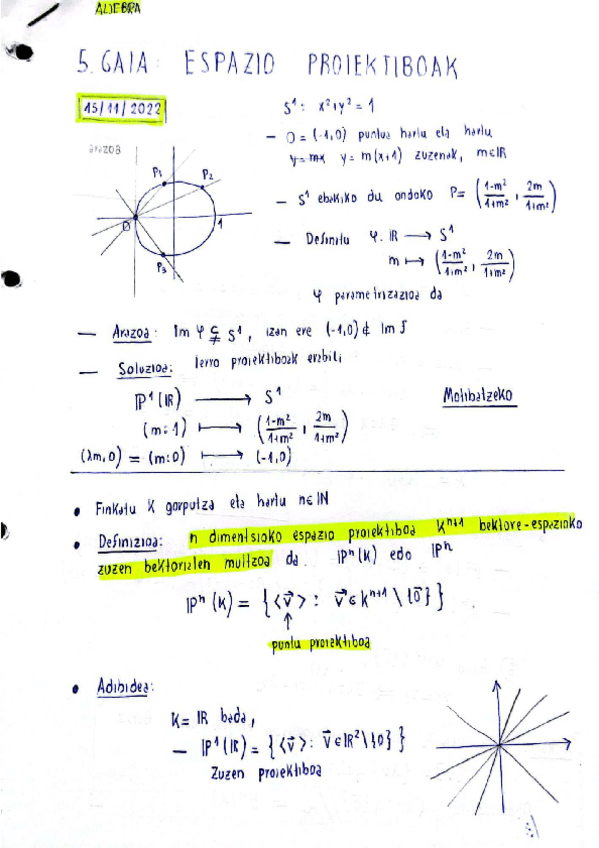 ALJEBRA
5. GAIA: ESPAZIO PROIEKTIBOAK
15/11/2022
S¹: x²+y² = 1
arazoa
P₁
P₂
O
1
P₃
— O = (-1,0) puntua hartu eta hartu
y=mx y = m(x+1) zuzenak, m∈IR
— S¹ ebakiko du ondoko P= (1-m²/1+m², 2m/1+m²)
— Definitu φ: IR → S¹
m ↦ (1-m²/1+m², 2m/1+m²)
φ parametrizazioa da
— Arazoa: Im φ ⊊ S¹, izan ere (-1,0) ∉ Im f
— Soluzioa: lerro proiektiboak erabili
IP¹(IR) → S¹
Motibatzeko
(m:1) ↦ (1-m²/1+m², 2m/1+m²)
(λm,0) = (m:0) ↦ (-1,0)
• Finkatu K gorputza eta hartu n∈IN
• Definizioa: n dimentsioko espazio proiektiboa Kⁿ⁺¹ bektore-espazioko
zuzen bektorialen multzoa da. IPⁿ(K) edo IPⁿ
IPⁿ(K) = {<v⃗>: v⃗ ∈ Kⁿ⁺¹ \ {0⃗}}
↑
puntu proiektiboa
• Adibidea:
K= IR bada,
— IP¹(IR) = {<v⃗>: v⃗ ∈ IR² \ {0}}
Zuzen proiektiboa